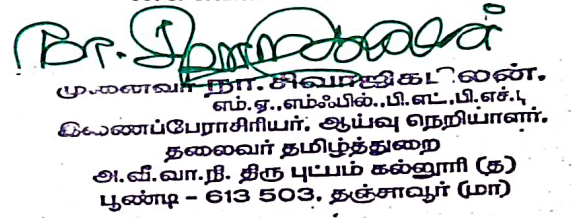 நா. சிவாஜி கபிலன்
முனைவர் நா. சிவாஜிகபிலன்,
எம்.ஏ.,எம்ஃபில்.,பி.எட்.,பி.எச்.டி
இணைப்பேராசிரியர், ஆய்வு நெறியாளர்,
தலைவர் தமிழ்த்துறை
அ.வீ.வா.நி. திரு புட்பம் கல்லூரி (த)
பூண்டி – 613 503, தஞ்சாவூர் (மா)